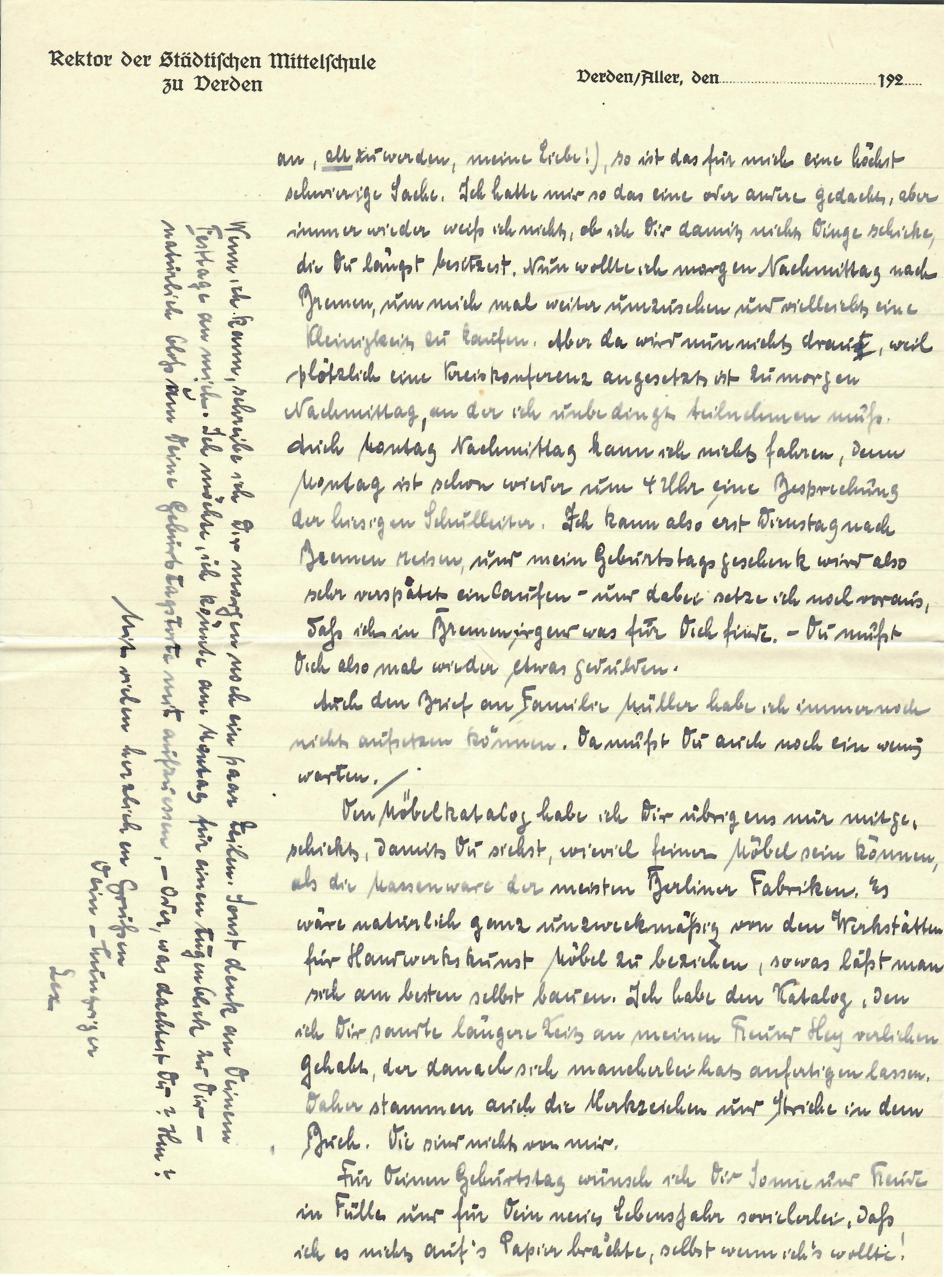 Rektor der Städtischen Mittelschule
zu Verden
Verden/Aller, den 192
an, alt zu werden, meine Liebe!), so ist das für mich eine höchst
schwierige Sache. Ich hatte mir so das eine oder andere gedacht, aber
immer wieder weiß ich nicht, ob ich Dir damit nicht Dinge schicke,
die Du längst besitzest. Nun wollte ich morgen Nachmittag nach
Bremen, um mich mal weiter umzusehen und vielleicht eine
Kleinigkeit zu kaufen. Aber da wird nun nichts draus, weil
plötzlich eine Kreiskonferenz angesetzt ist zu morgen
Nachmittag, an der ich unbedingt teilnehmen muß.
Auch Montag Nachmittag kann ich nicht fahren, denn
Montag ist schon wieder um 4 Uhr eine Besprechung
der hiesigen Schulleiter. Ich kann also erst Dienstag nach
Bremen reisen, und mein Geburtstagsgeschenk wird also
sehr verspätet einlaufen – und dabei setze ich noch voraus,
daß ich in Bremen irgend was für Dich finde. – Du mußt
Dich also mal wieder etwas gedulden.
Auch den Brief an Familie Müller habe ich immer noch
nicht aufsetzen können. Da mußt Du auch noch ein wenig
warten. /
Den Möbelkatalog habe ich Dir übrigens nur mitge-
schickt, damit Du siehst, wieviel feiner Möbel sein können,
als die Massenware der meisten Berliner Fabriken. Es
wäre natürlich ganz unzweckmäßig von den Werkstätten
für Handwerkskunst Möbel zu beziehen, sowas läßt man
sich am besten selbst bauen. Ich habe den Katalog, den
ich Dir sandte längere Zeit an meinen Freund Hey verliehen
gehabt, der danach sich mancherlei hat anfertigen lassen.
Daher stammen auch die Merkzeichen und Striche in dem
Buch. Die sind nicht von mir.
Für Deinen Geburtstag wünsch ich Dir Sonne und Freude
in Fülle und für Dein neues Lebensjahr sovielerlei, daß
ich es nicht auf's Papier brächte, selbst wenn ich's wollte!
Wenn ich kann, schreibe ich Dir morgen noch ein paar Zeilen. Sonst denk an Deinem
Festtage an mich. Ich möchte, ich könnte am Montag für einen Augenblick zu Dir –
natürlich bloß um Deine Geburtstagstorte mit aufzuessen. – Oder, was dachtest Du? Hm?
Mit vielen herzlichen Grüßen
Dein – hungriger